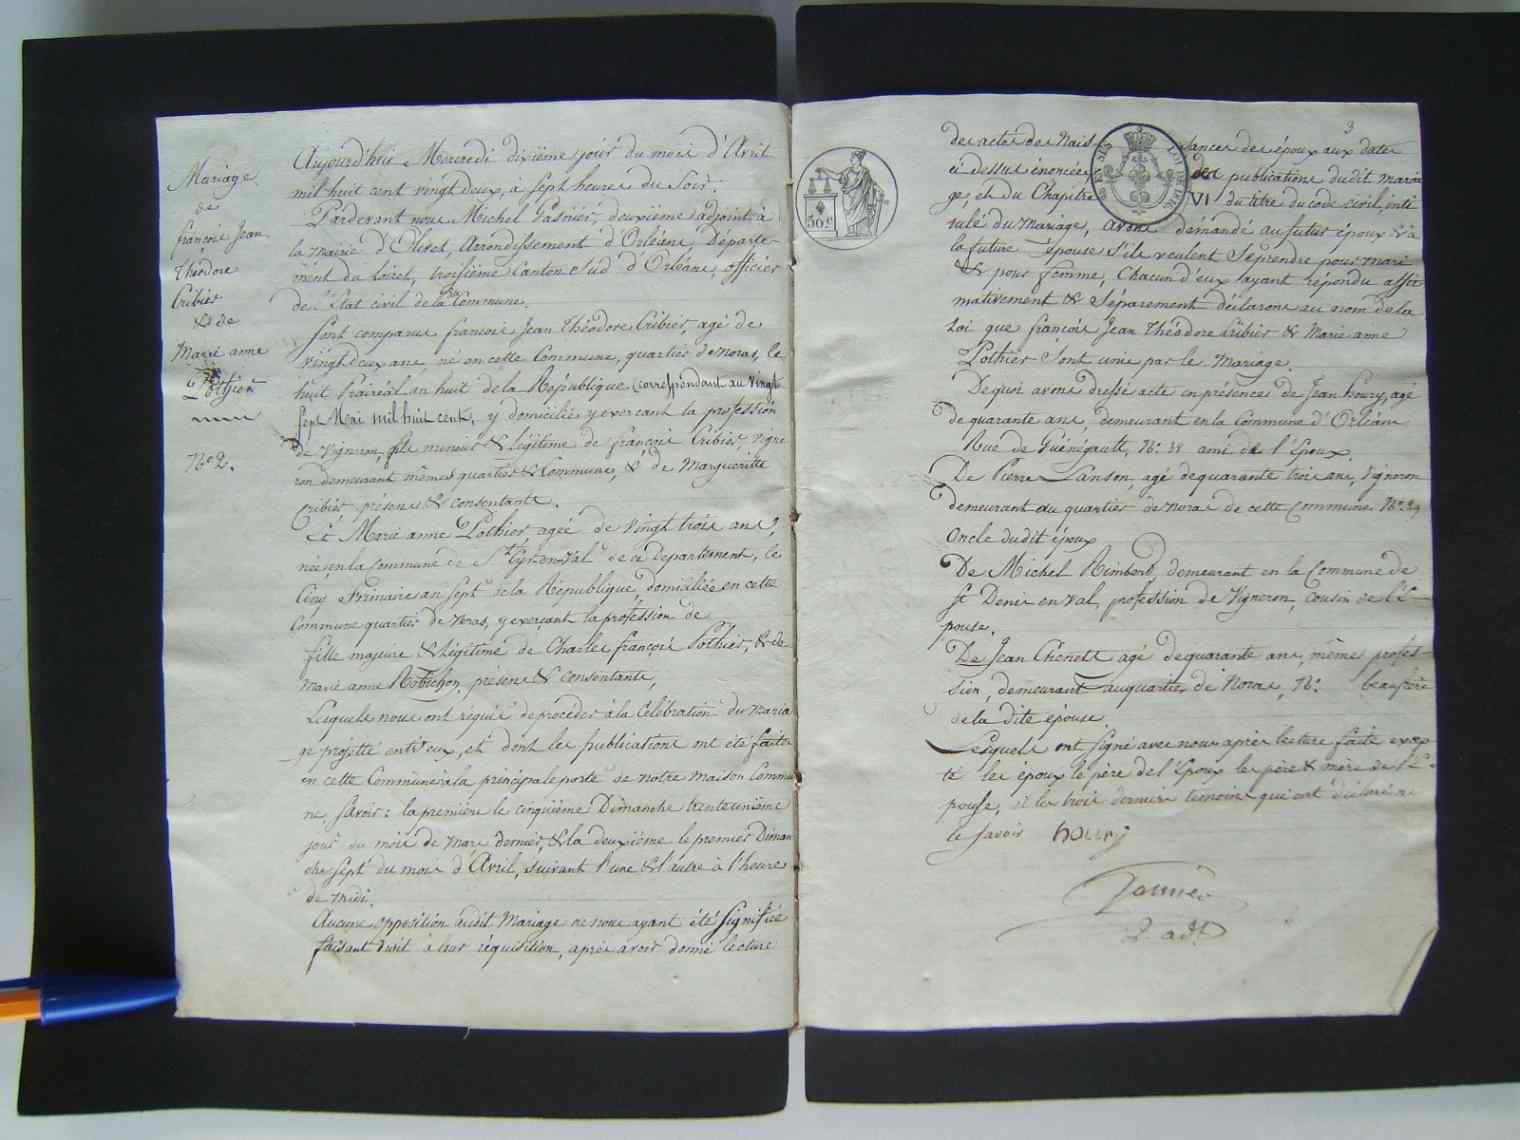 Mariage
de
françois Jean
Théodore
Cribier
& de
Marie anne
Pothier
N.o 2.
Aujourd'hui Mercredi dixième jour du mois d'Avril
mil huit cent vingt deux, à sept heures du Soir.
Pardevant nous Michel Gasnier, deuxième adjoint à
la mairie d'Olivet, Arrondissement d'Orléans, Départe-
ment du Loiret, troisième Canton Sud d'Orléans, officier
de l'Etat civil de la Commune.
Sont comparus françois Jean Théodore Cribier, agé de
vingt deux ans, né en cette Commune, quartier de noras, le
huit Prairéal an huit de la République (correspondant au vingt
sept Mai mil huit cent, y domicilié y exerçant la profession
de Vigneron, fils mineur & légitime de françois Cribier, vigne
ron demeurant mêmes quartier & Commune, & de Margueritte
cribier présens & consentants.
Et Marie anne Pothier agée de vingt trois ans,
née en la commune de St Cyr-en-Val de ce departement, le
Cinq Frimaire an sept de la République, domiciliée en cette
Commune quartier de Noras, y exerçant la profession de
fille majeure & légitime de Charles françois Pothier, & de
marie anne Robichon, présens & consentants,
Lesquels nous ont réquis de procéder à la Célébration du maria
ge projetté entr'eux, et dont les publications ont été faites
en cette Commune à la principale porte de notre maison Commu
ne, savoir : la première le cinquième Dimanche trente unième
jour du mois de mars dernier, & la deuxième le premier Diman
che sept du mois d'Avril, suivant l'une & l'autre à l'heure
de midi.
Aucune opposition audit Mariage ne nous ayant été signifiée
faisant droit à leur réquisition, après avoir donné lecture
3
50.c
des actes de Nais sance des époux aux dates
ci dessus énoncées des publications dudit maria
ge, et du Chapitre VI du titre du code civil, inti
tulé du Mariage, avons demandé au futur époux & à
la future épouse s'ils veulent se prendre pour mari
& pour femme, Chacun d'eux ayant répondu affir
mativement & séparement déclarons au nom de la
Loi que françois Jean Théodore Cribier & Marie anne
Pothier sont unis par le Mariage.
De quoi avons dressé acte en présence de Jean houry, agé
de quarante ans, demeurant en la Commune d'Orléans
Rue de Guénégault, N.o 38 ami de l'Epoux.
De Pierre Lanson, agé de quarante trois ans, Vigneron
demeurant au quartier de noras de cette Commune N.o 29
Oncle dudit époux
De Michel Rimbert, demeurant en la Commune de
St Denis en val, profession de Vigneron, cousin de l'é-
pouse.
De Jean Chenelt agé de quarante ans, même profes-
sion, demeurant au quartier de Noras, N.o beaufrère
de la dite épouse.
Lesquels ont signé avec nous après lecture faite excep
té les époux le père de l'Epoux les père & mère de l'é-
pouse, et les trois derniers témoins qui ont déclaré ne
le savoir houry
Gasnier
2. adt